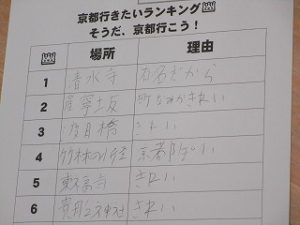 京都行きたいランキング
そうだ、京都行こう！
場所 理由
1 清水寺 有名だから
2 産寧坂 町なみがきれい
3 渡月橋 きれい
4 竹林の小径 京都っぽい
5 東福寺 きれい
6 貴船神社 きれい